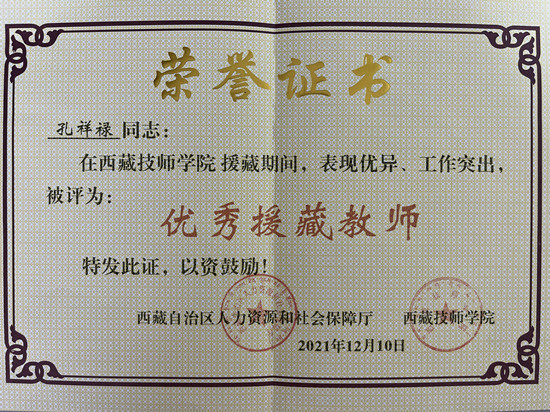 荣誉证书
孔祥禄同志：
在西藏技师学院援藏期间，表现优异、工作突出，
被评为：
优秀援藏教师
特发此证，以资鼓励！
西藏自治区人力资源和社会保障厅 西藏技师学院
2021年12月10日